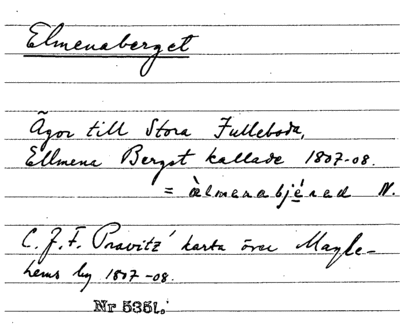 Elmenaberget
Ägor till Stora Fulleboda,
Ellmena Berget kallade 1807-08.
= àlmenabjéred N.
C. J. F. Pravitz' karta över Magle-
hems by 1807-08.
Nr 5351.